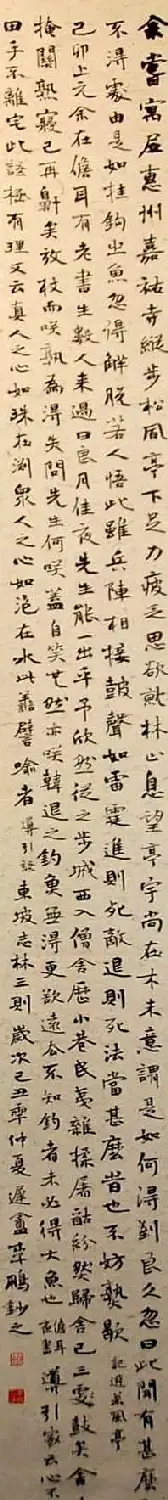 余嘗寓居惠州嘉祐寺縱步松風亭下足力疲乏思欲就林止息望亭宇尚在木末意謂是如何得到良久忽曰此間有甚麽
不得處由是如挂鈎之魚忽得解脫若人悟此雖兵陣相接皷聲如雷霆進則死敵退則死法當甚麽時也不妨熟歇 記遊松風亭
己卯上元余在儋耳有老書生數人來過曰良月佳夜先生能一出乎予欣然從之步城西入僧舍歷小巷民夷雜揉屠酤紛然歸舍已三鼓矣舍
掩關熟寢已再鼾矣放杖而咲孰為得失問先生何咲蓋自笑也然亦咲韓退之釣魚無得更欲遠去不知釣者未必得大魚也 儋耳夜書 導引家云心不
田手不離宅此語極有理又云真人之心如珠在淵衆人之心如泡在水此善譬喻者 導引語 東坡志林三則歲次己丑年仲夏遲盦草鵬鈔之